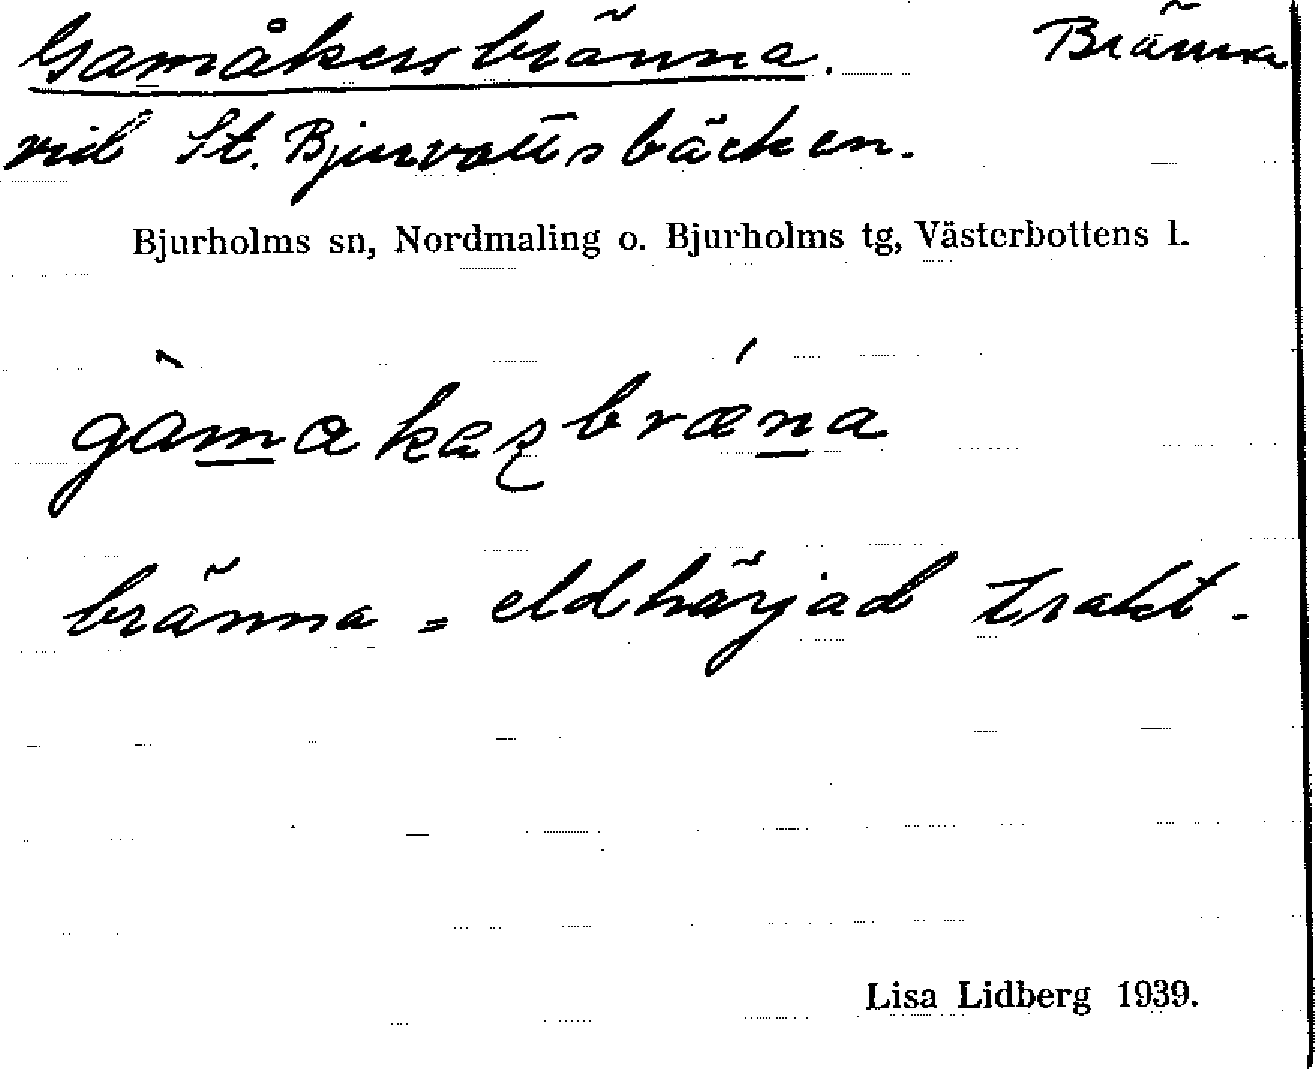 Gamåkersbränna. Bränna
vid St. Bjurvattsbäcken.
Bjurholms sn, Nordmaling o. Bjurholms tg, Västerbottens l.
bränna = eldhärjad trakt.
Lisa Lidberg 1939.